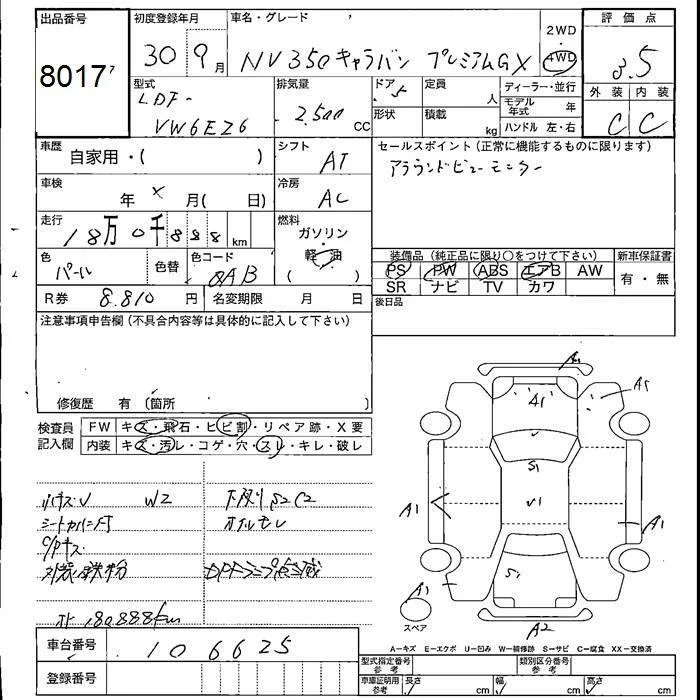 出品番号
8017 7
初度登録年月
30 9月
車名・グレード
NV350キャラバン プレミアムGX
2WD
4WD
評価点
3.5
型式
LDF-
VW6E26
排気量
2.500 CC
ドア 5
形状
定員 人
積載 kg
ディーラー・並行
モデル年式 年
ハンドル 左・右
外装 内装
C C
車歴
自家用・( )
シフト
AT
セールスポイント(正常に機能するものに限ります)
アラウンドビューモニター
車検
年 × 月( 日)
冷房
AC
走行
18万0千888km
燃料
ガソリン
軽油
( )
色
パール
色替
色コード
QAB
装備品(純正品に限り○をつけて下さい)
新車保証書
PS PW ABS エアB AW
SR ナビ TV カワ
有・無
R券 8.810円
名変期限 月 日
後日品
注意事項申告欄(不具合内容等は具体的に記入して下さい)
修復歴 有(箇所 )
検査員
記入欄
FW キズ・飛石・ヒビ割・リペア跡・X要
内装 キズ・汚レ・コゲ・穴・スレ・キレ・破レ
W2
下廻りS2C2
シートカバー付
外装鉄粉
DPFランプ点滅
180888km
A1
A1
A1
S1
V1
A1
A1
S1
A1
A2
スペア
A-キズ E-エクボ U-凹み W-補修跡 S-サビ C-腐食 XX-交換済
車台番号
106625
登録番号
型式指定番号
参考
類別区分番号
参考
車庫証明用
参考
長さ cm
幅 cm
高さ cm